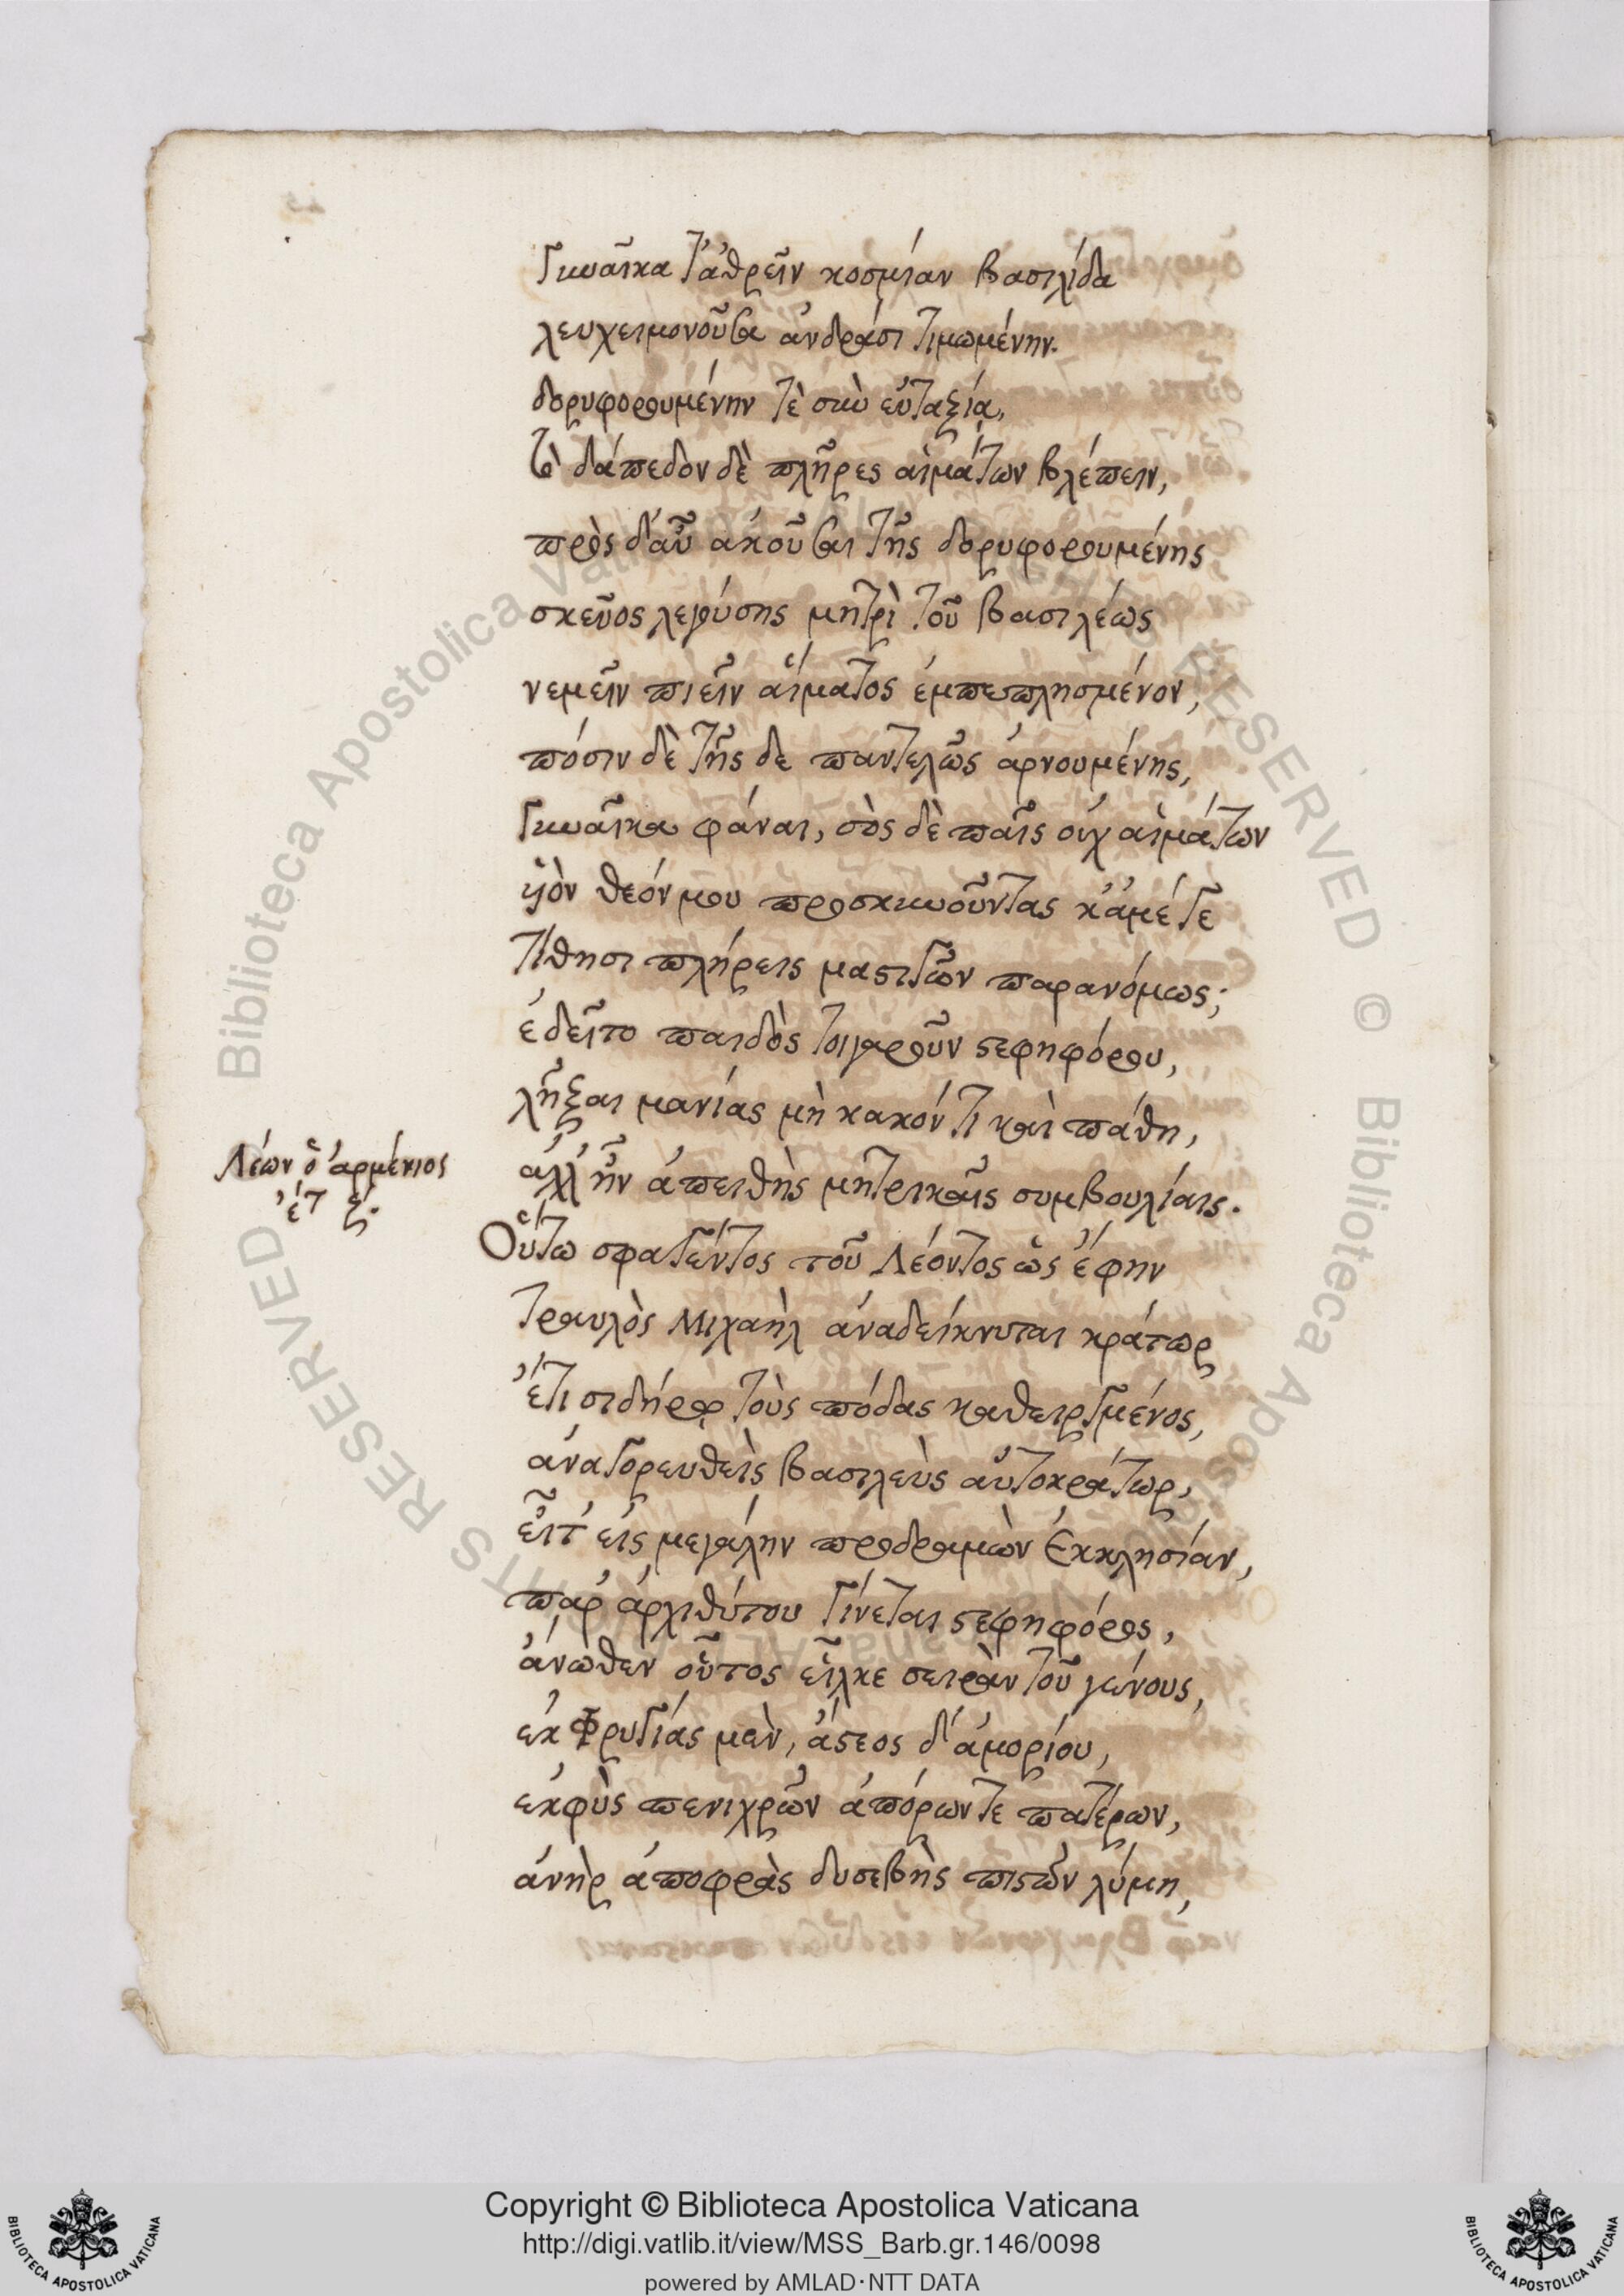 Γυναῖκα τ' ἀθρεῖν κοσμίαν βασιλίδα
λευχειμονοῦσα ἀνδράσι τιμωμένην.
δορυφορουμένην τὲ σὺν εὐταξίᾳ,
τὸ δάπεδον δὲ πλῆρες αἱμάτων βλέπειν,
πρὸς δ' αὖ ἀκοῦσαι τῆς δορυφορουμένης
σκεῦος λεγούσης μητρὶ τοῦ βασιλέως
νεμεῖν πιεῖν αἵματος ἐμπεπλησμένον,
πόσιν δὲ τῆς δε παντελῶς ἀρνουμένης,
Γυναῖκα φάναι, σὸς δὲ παῖς οὐχ αἱμάτων
υἱὸν θεόν μου προσκυνοῦντας κἀμέ γε
τίθησι πλήρεις μαστιγῶν παρανόμως;
ἐδεῖτο παιδὸς τοιγαροῦν στεφηφόρου,
λῆξαι μανίας μὴ κακόν τι καὶ πάθη,
ἀλλ' ἦν ἀπειθὴς μητρικαῖς συμβουλίαις.
Λέων ὁ ἀρμένιος
ἔτ ζ.
Οὕτω σφαγέντος τοῦ Λέοντος ὡς ἔφην
τραυλὸς Μιχαὴλ ἀναδείκνυται κράτωρ
ἔτι σιδήρῳ τοὺς πόδας καθειργμένος,
ἀναγορευθεὶς βασιλεὺς αὐτοκράτωρ,
εἶτ' εἰς μεγάλην προδραμὼν Ἐκκλησίαν,
παρ' ἀρχιθύτου γίνεται στεφηφόρος,
ἄνωθεν οὗτος εἷλκε σειρὰν τοῦ γένους,
ἐκ Φρυγίας μὲν, ἄστεος δ' ἀμορίου,
ἐκφὺς πενιχρῶν ἀπόρων τε πατέρων,
ἀνὴρ ἀποφρὰς δυσεβὴς πιστῶν λύμη,
Copyright © Biblioteca Apostolica Vaticana
http://digi.vatlib.it/view/MSS_Barb.gr.146/0098
powered by AMLAD·NTT DATA
BIBLIOTECA APOSTOLICA VATICANA
BIBLIOTECA APOSTOLICA VATICANA